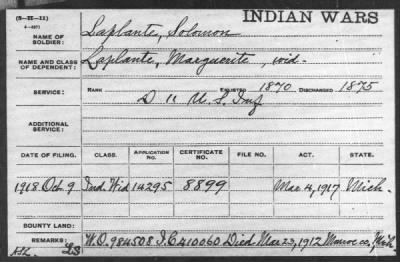 (3-II-II)
4-4871
INDIAN WARS
NAME OF SOLDIER: Laplante, Solomon
NAME AND CLASS OF DEPENDENT: Laplante, Marguerite, wid.
SERVICE: RANK ENLISTED 1870 DISCHARGED 1875
D 11 U.S. Inf
ADDITIONAL SERVICE:
DATE OF FILING. CLASS. APPLICATION NO. CERTIFICATE NO. FILE NO. ACT. STATE.
1918 Oct 9 Ind. Wid 14295 8899 Mar 4, 1917 Mich.
BOUNTY LAND:
REMARKS: W.O. 984508 I.C. 410060 Died Mar 23, 1912 Monroe co, Mich